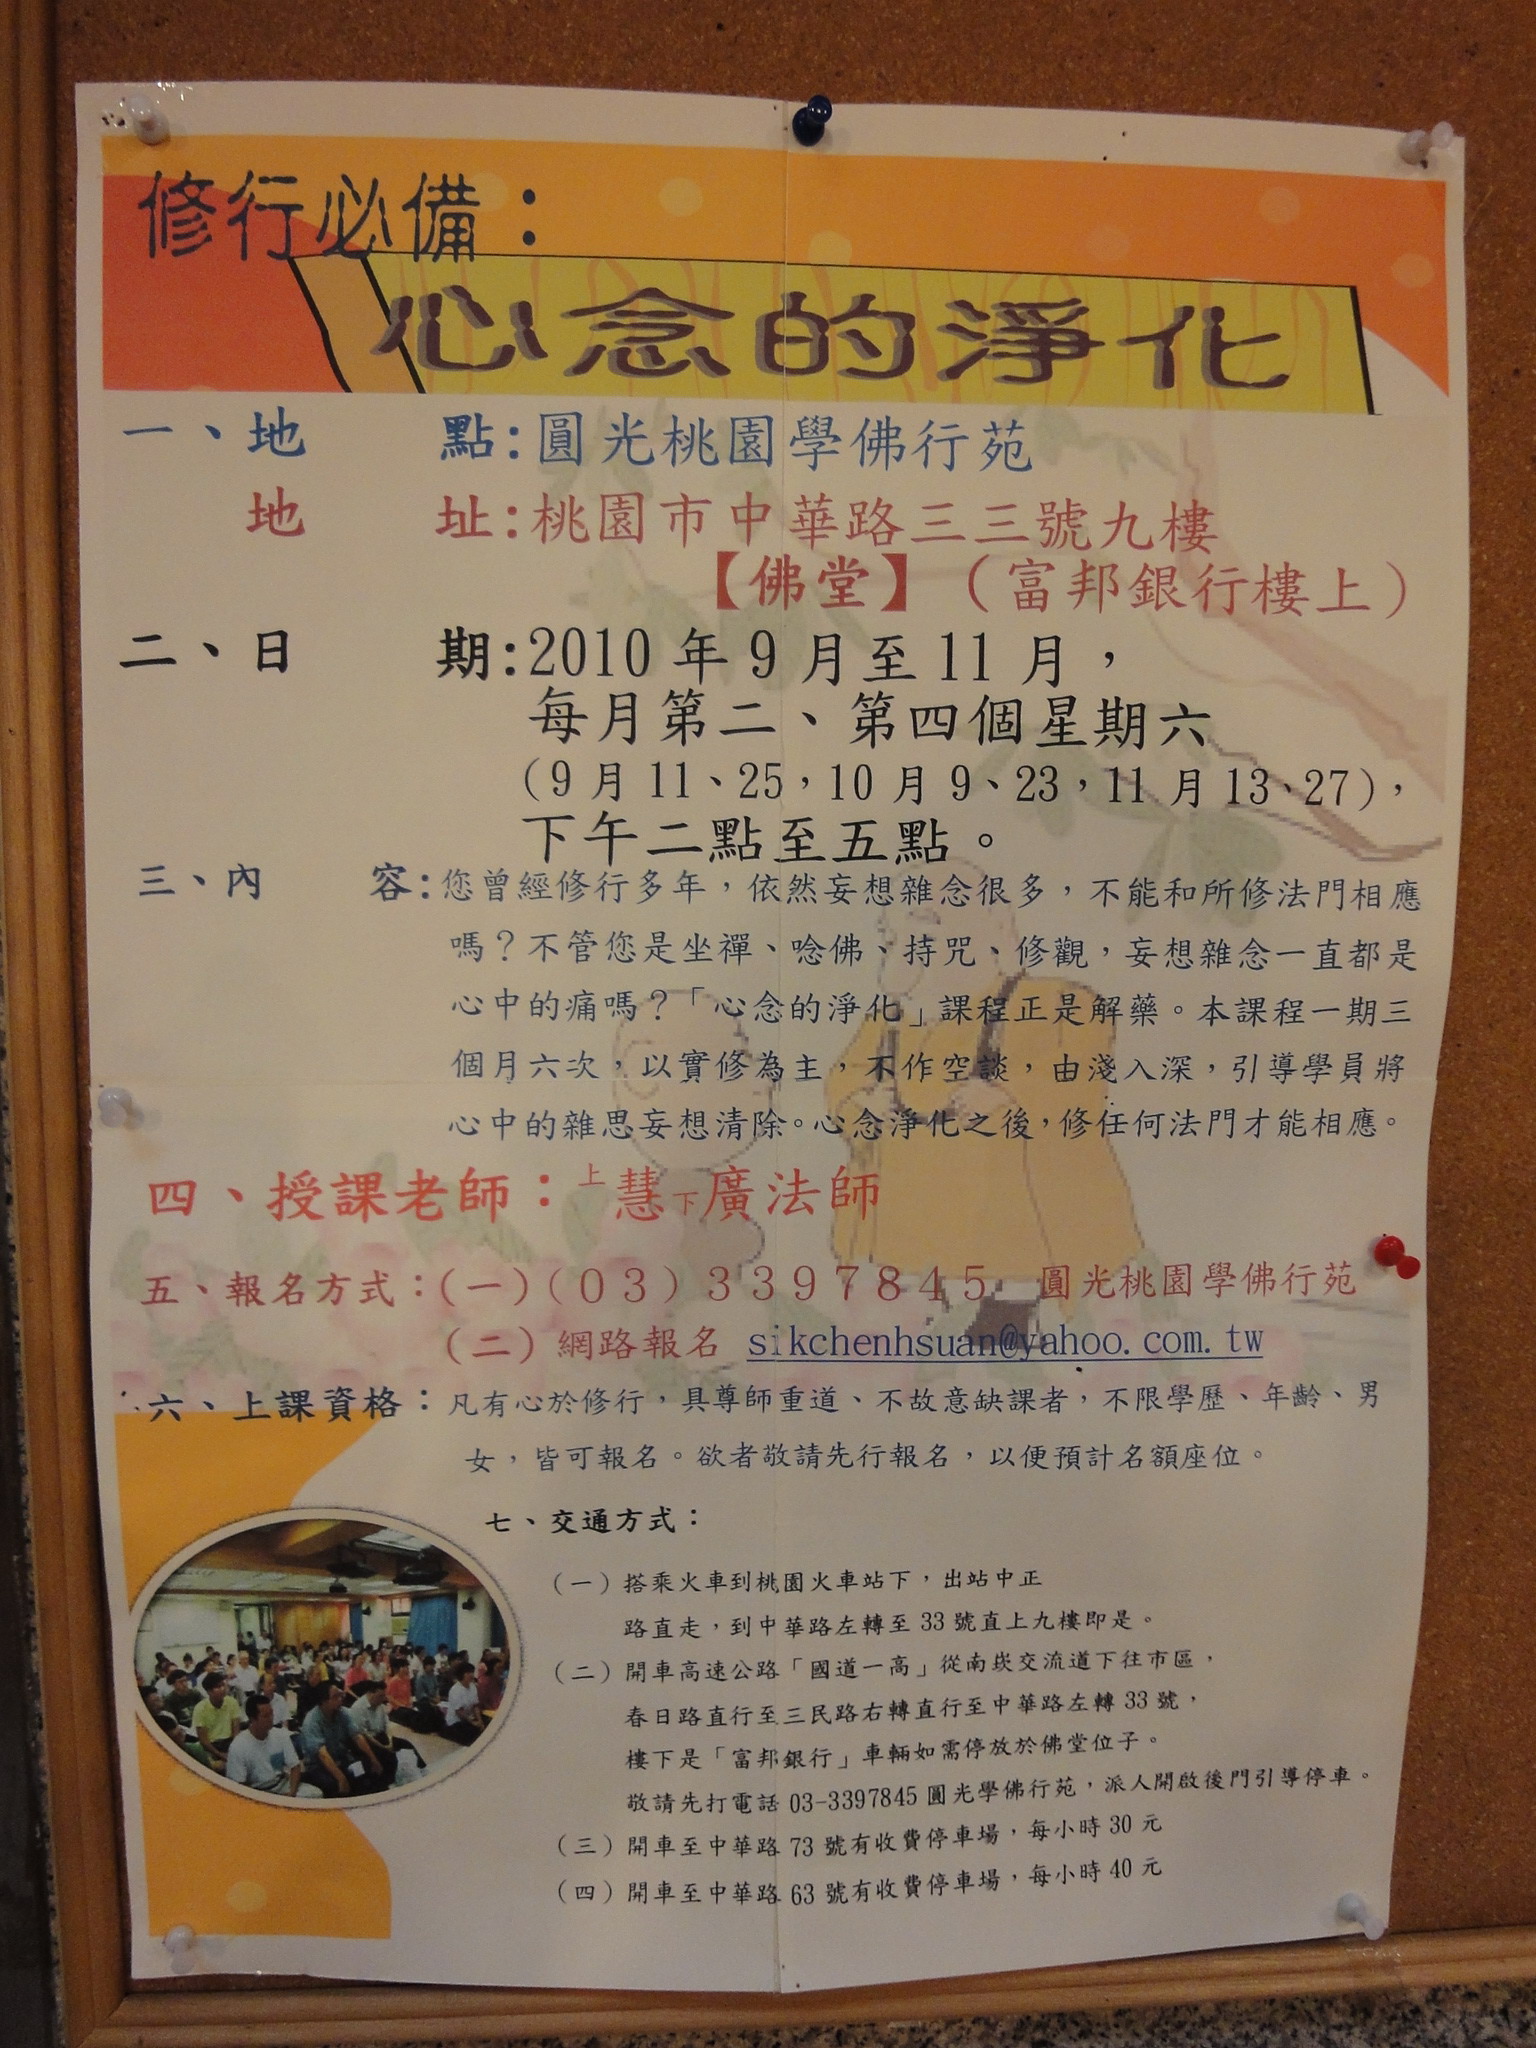 修行必備：
心念的淨化
一、地　　點:圓光桃園學佛行苑
地　　址:桃園市中華路三三號九樓
【佛堂】（富邦銀行樓上）
二、日　　期:2010 年 9 月至 11 月，
每月第二、第四個星期六
(9 月 11、25，10 月 9、23，11 月 13、27)，
下午二點至五點。
三、內　　容:您曾經修行多年，依然妄想雜念很多，不能和所修法門相應
嗎？不管您是坐禪、唸佛、持咒、修觀，妄想雜念一直都是
心中的痛嗎？「心念的淨化」課程正是解藥。本課程一期三
個月六次，以實修為主，不作空談，由淺入深，引導學員將
心中的雜思妄想清除。心念淨化之後，修任何法門才能相應。
四、授課老師：上慧下廣法師
五、報名方式：(一)（０３）３３９７８４５　圓光桃園學佛行苑
（二）網路報名 sikchenhsuan@yahoo.com.tw
六、上課資格：凡有心於修行，具尊師重道、不故意缺課者，不限學歷、年齡、男
女，皆可報名。欲者敬請先行報名，以便預計名額座位。
七、交通方式：
（一）搭乘火車到桃園火車站下，出站中正
路直走，到中華路左轉至 33 號直上九樓即是。
（二）開車高速公路「國道一高」從南崁交流道下往市區，
春日路直行至三民路右轉直行至中華路左轉 33 號，
樓下是「富邦銀行」車輛如需停放於佛堂位子。
敬請先打電話 03-3397845 圓光學佛行苑，派人開啟後門引導停車。
（三）開車至中華路 73 號有收費停車場，每小時 30 元
（四）開車至中華路 63 號有收費停車場，每小時 40 元